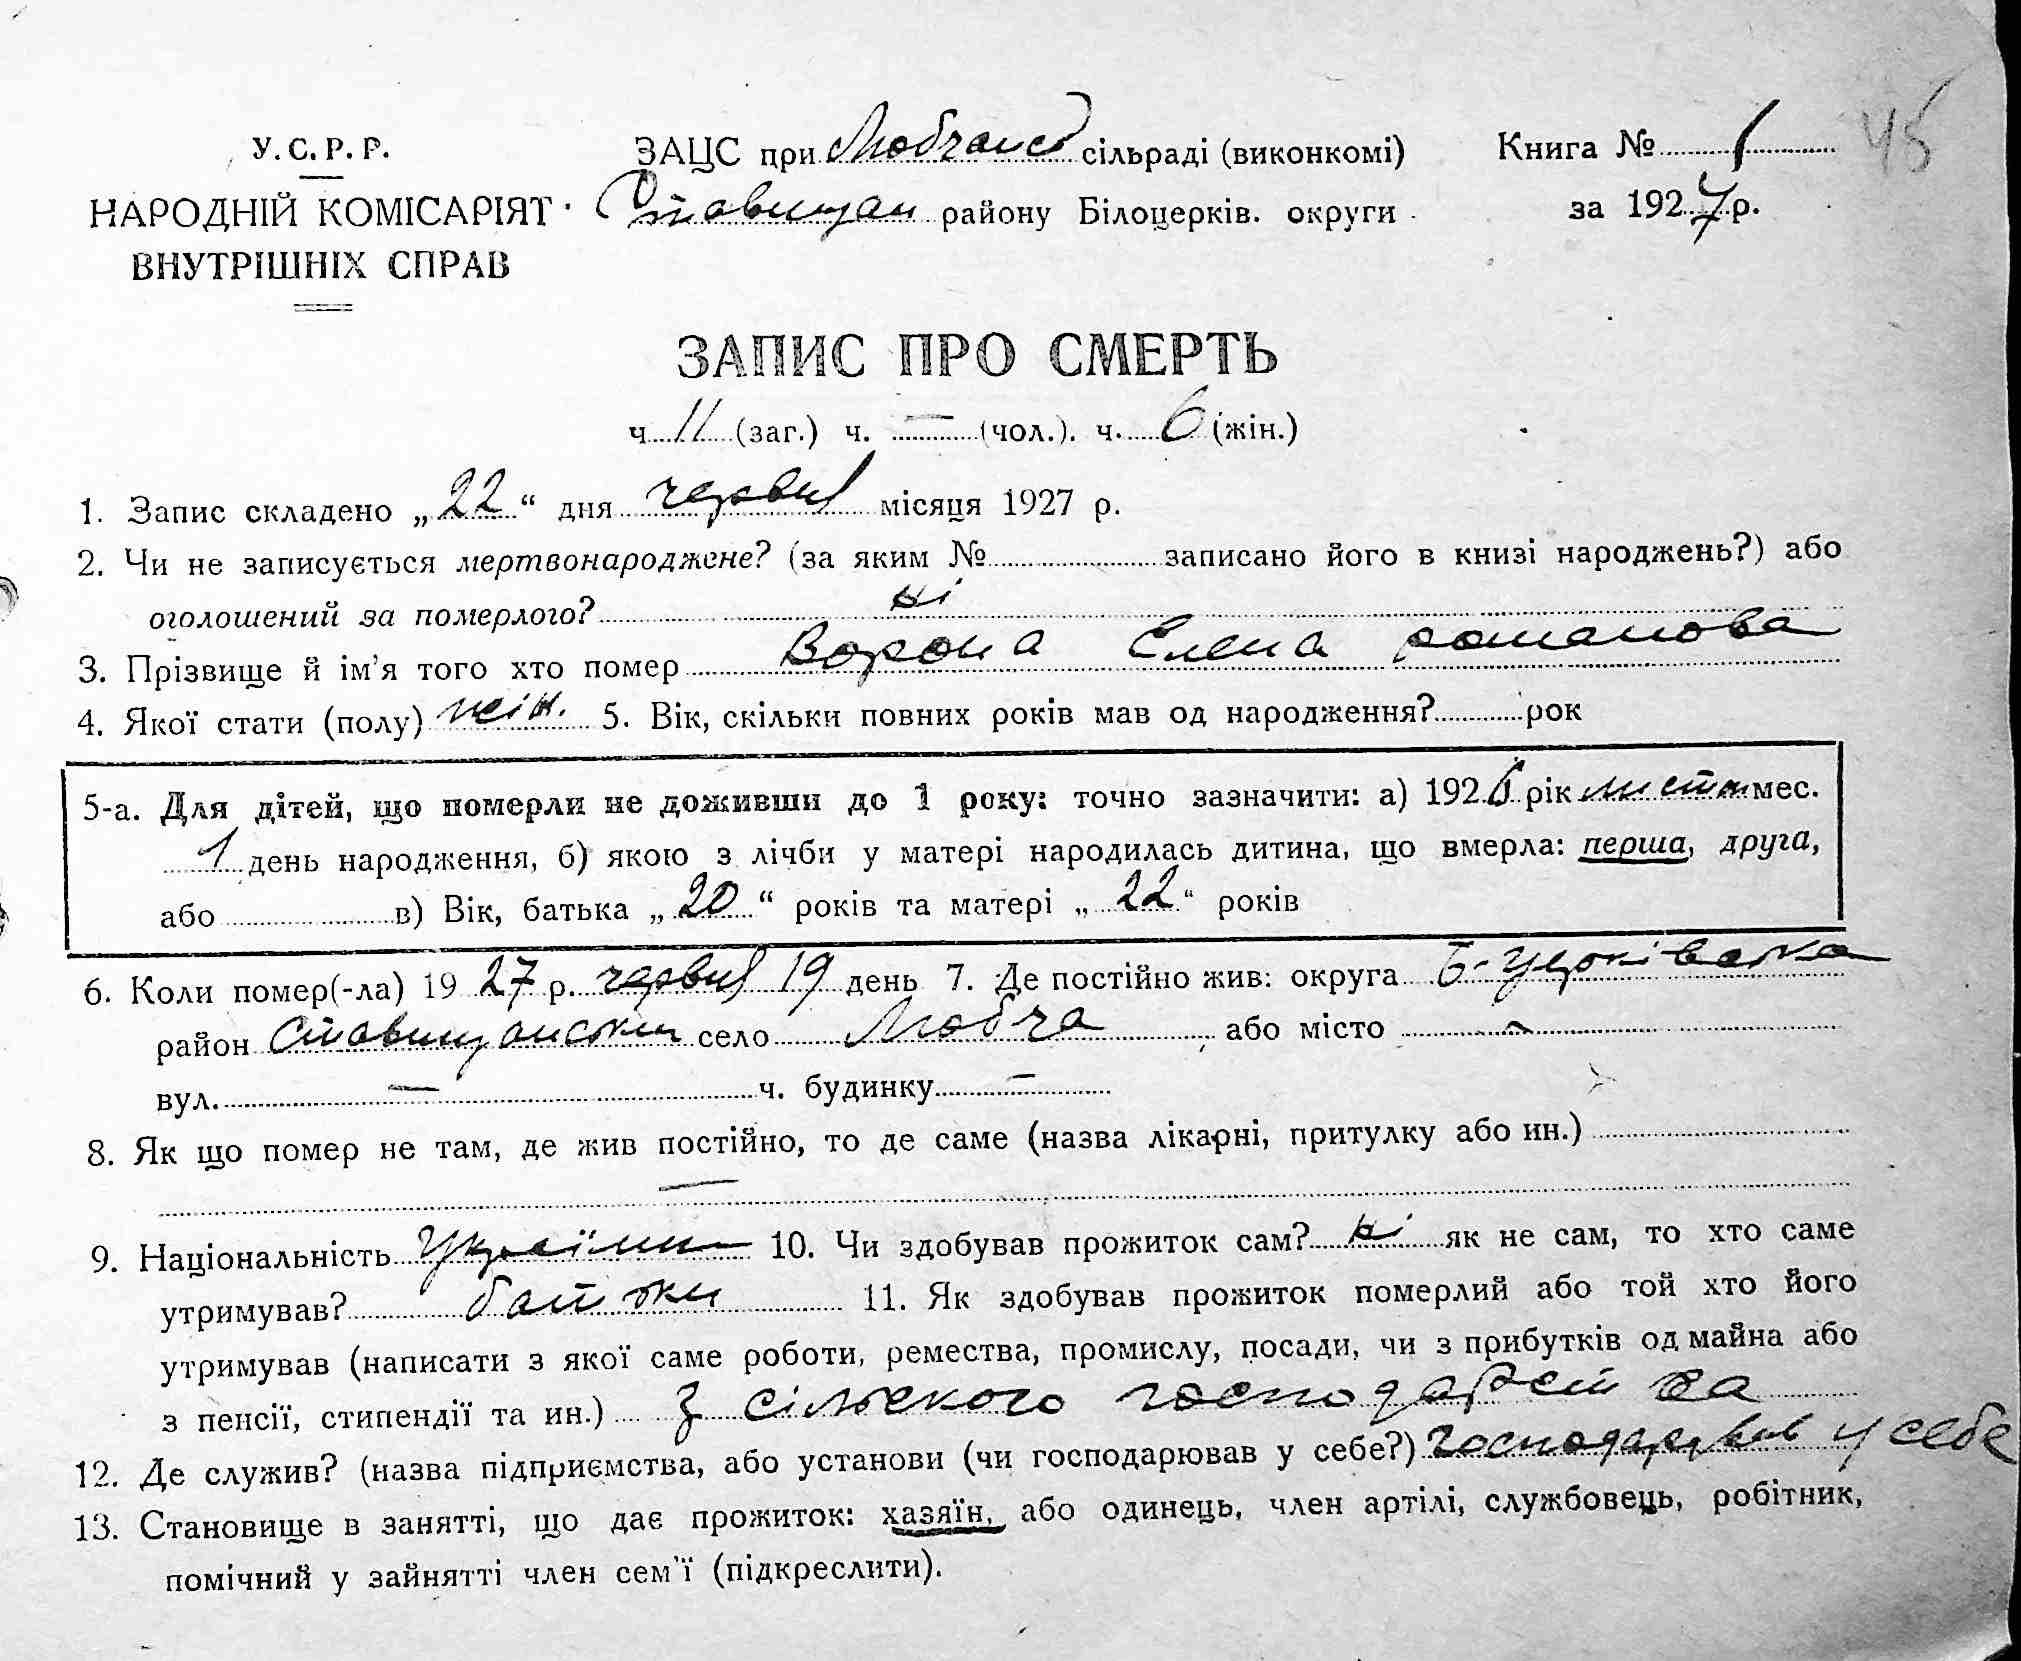 У. С. Р. Р.
НАРОДНІЙ КОМІСАРІЯТ
ВНУТРІШНІХ СПРАВ
ЗАЦС при Любчанс сільраді (виконкомі)
Ставищан району Білоцерків. округи
Книга № 1
за 1927 р.
45
ЗАПИС ПРО СМЕРТЬ
ч 11 (заг.) ч. — (чол.). ч. 6 (жін.)
1. Запис складено „22“ дня червня місяця 1927 р.
2. Чи не записується мертвонароджене? (за яким № записано його в книзі народжень?) або
оголошений за померлого? ні
3. Прізвище й ім'я того хто помер Ворона Елена романова
4. Якої стати (полу) жін. 5. Вік, скільки повних років мав од народження? рок
5-а. Для дітей, що померли не доживши до 1 року: точно зазначити: а) 1926 рік листоп мес.
1 день народження, б) якою з лічби у матері народилась дитина, що вмерла: перша, друга,
або в) Вік, батька „20“ років та матері „22“ років
6. Коли помер(-ла) 19 27 р. червня 19 день 7. Де постійно жив: округа Б-Церківська
район Ставищанський село Любча, або місто -
вул. — ч. будинку —
8. Як що помер не там, де жив постійно, то де саме (назва лікарні, притулку або ин.)
—
9. Національність Україн 10. Чи здобував прожиток сам? ні як не сам, то хто саме
утримував? батьки 11. Як здобував прожиток померлий або той хто його
утримував (написати з якої саме роботи, ремества, промислу, посади, чи з прибутків од майна або
з пенсії, стипендії та ин.) З сільского господарства
12. Де служив? (назва підприємства, або установи (чи господарював у себе?) господарував у себе
13. Становище в занятті, що дає прожиток: хазяїн, або одинець, член артілі, службовець, робітник,
помічний у зайнятті член сем'ї (підкреслити).